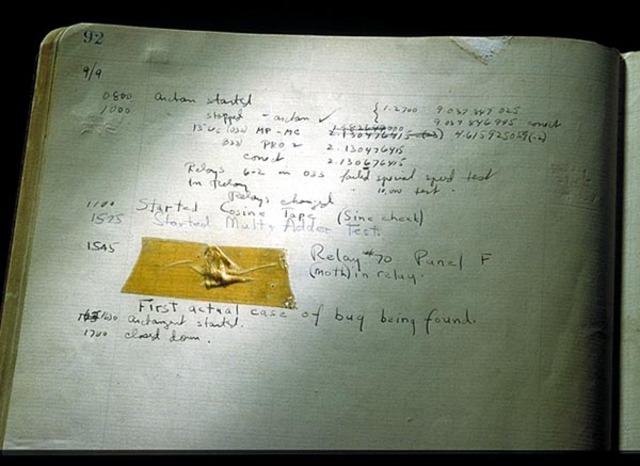 92
9/9
0800 arctan started
1000 stopped - arctan ✓ { 1.2700 9.037 847 025
9.037 846 995 conect
13"uc (032) MP-MC 2.130476415 (-3) 4.615925059 (-2)
(033) PRO 2 2.130476415
conect 2.130676415
Relays 6-2 in 033 failed special speed test
In Relay 10,000 test.
Relays changed
1100 Started Cosine Tape (Sine check)
1525 Started Mult+ Adder Test.
1545 Relay #70 Panel F
(moth) in relay.
First actual case of bug being found.
1630 arctangent started.
1700 closed down.